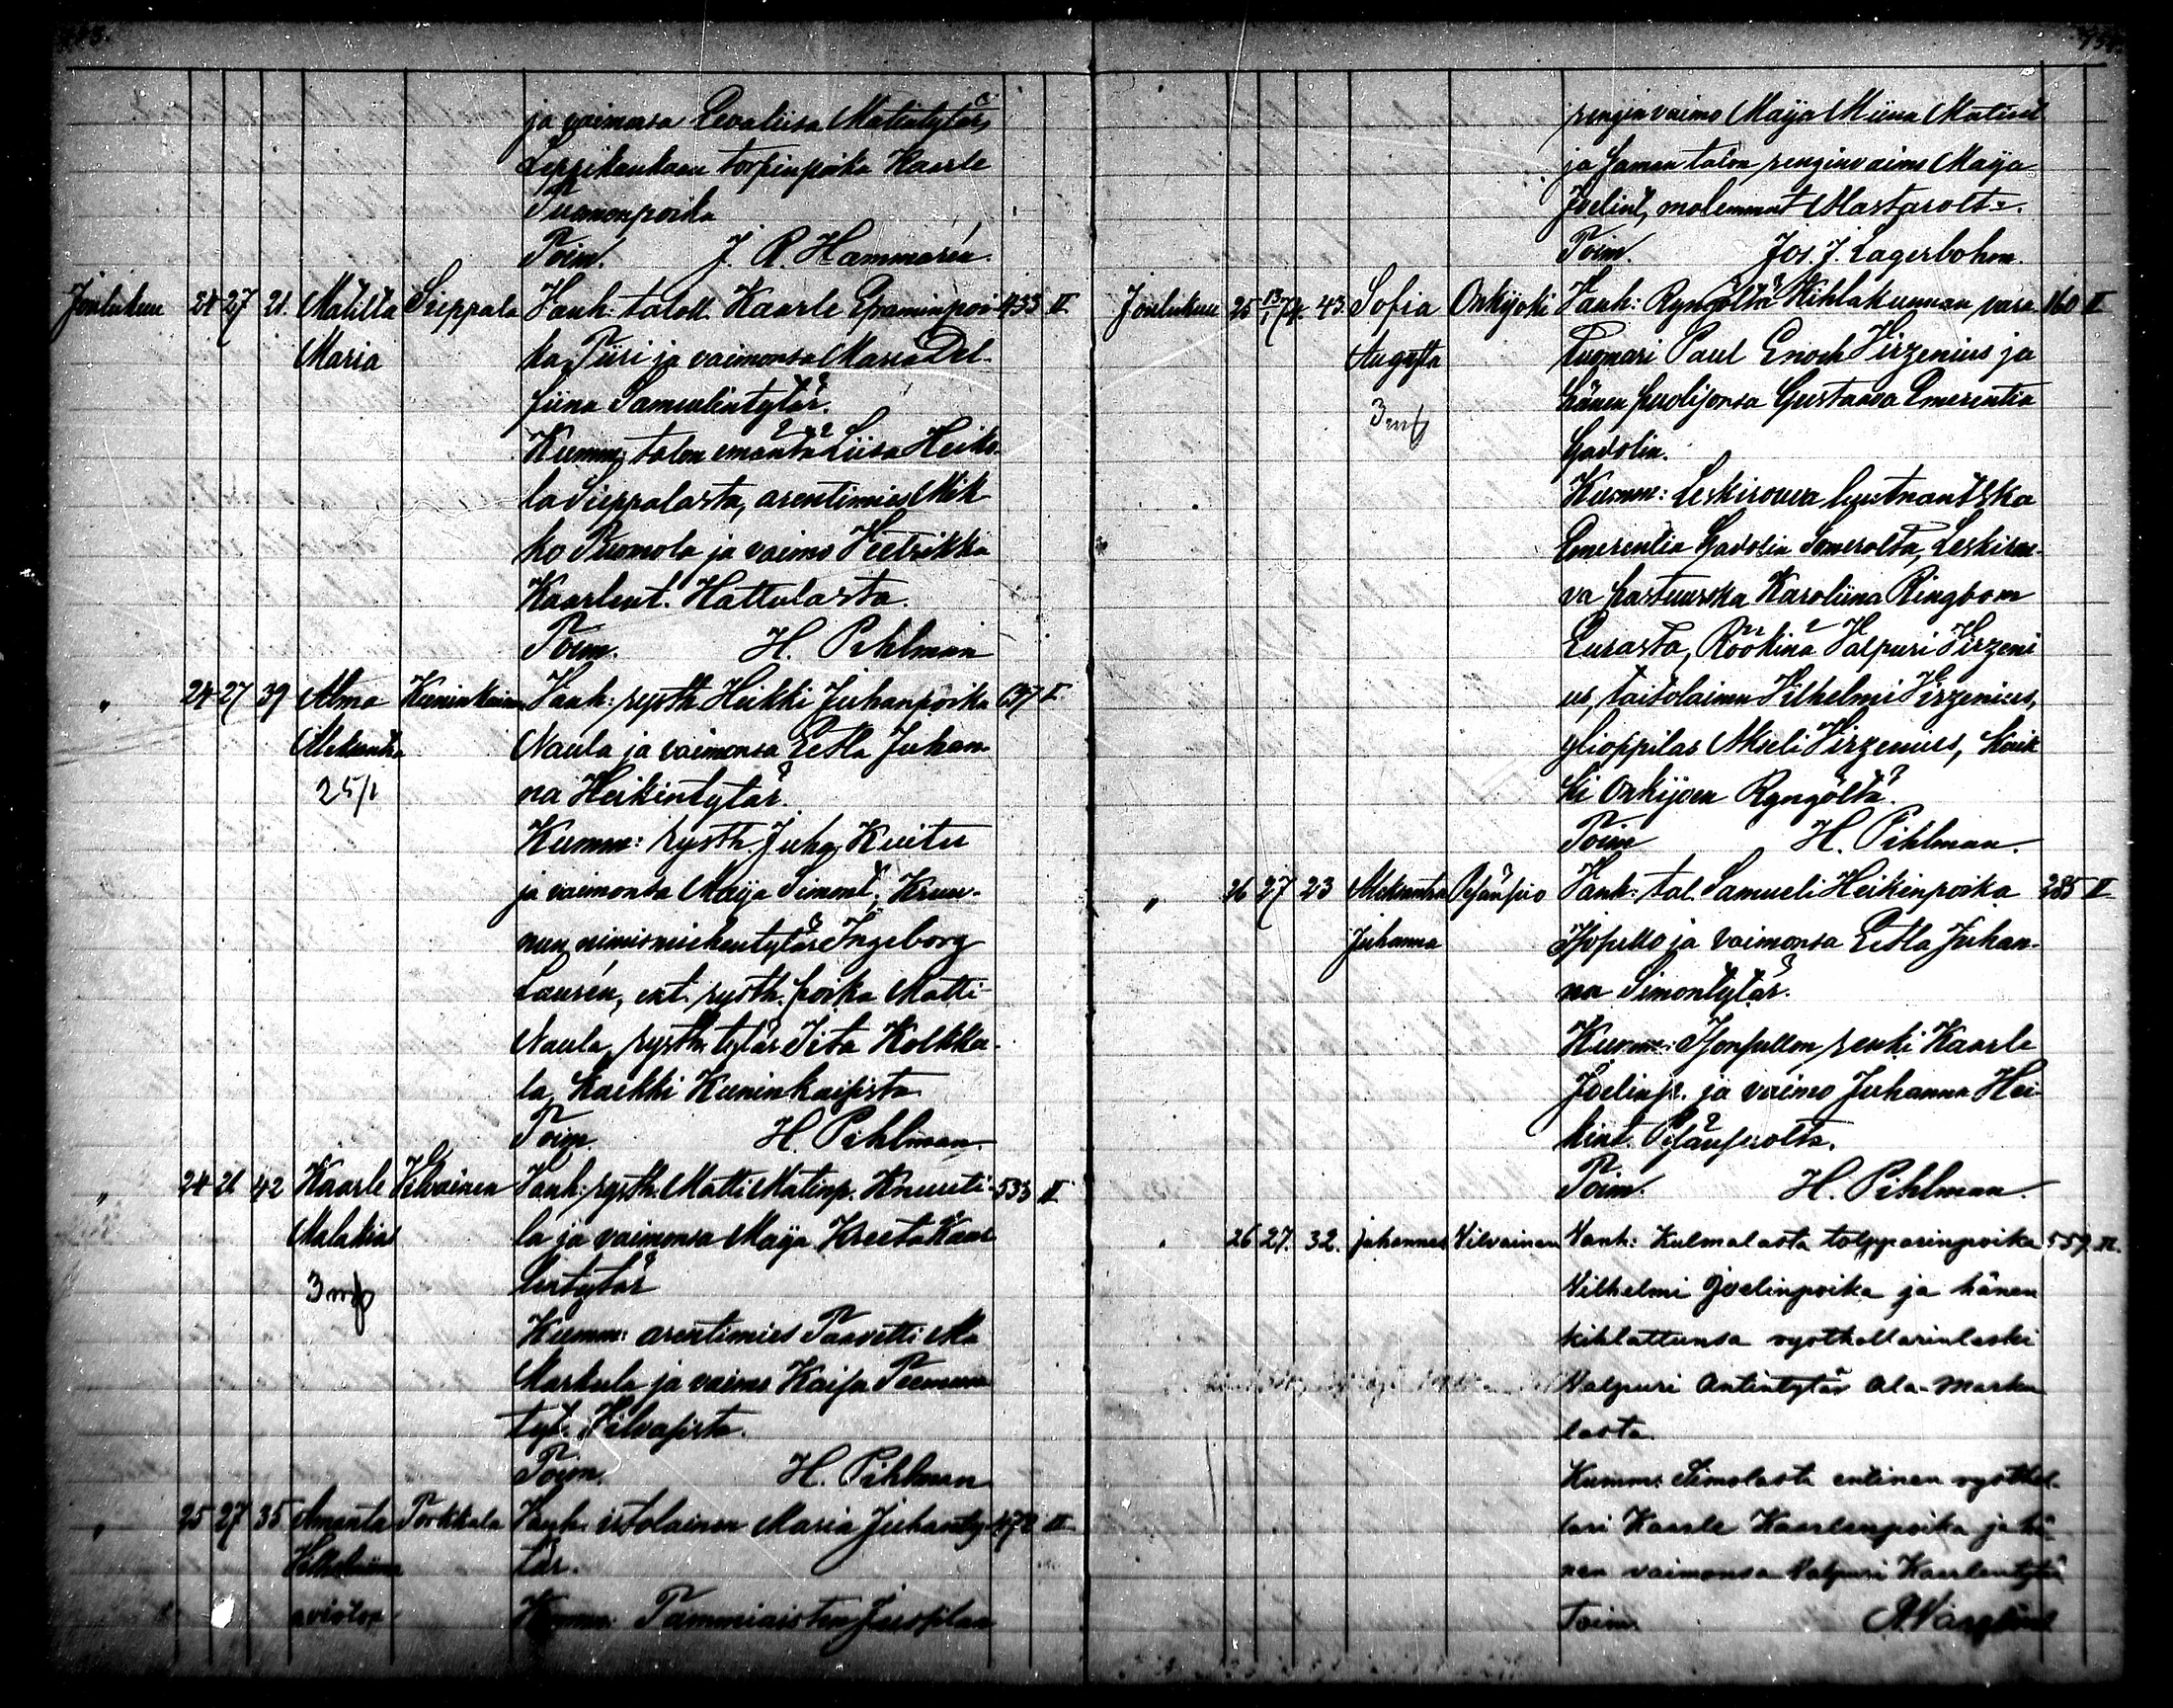 ja vaimonsa Eevaliisa Matintytär,
Leppikankaan torpinpoika Kaarle
Tuomonpoika
Toim. J. R. Hammarén.
Joulukuu 24 27 21. Matilta Sieppala Vanh: taloll. Kaarle Eframinpoi- 433 II
Maria ka Piiri ja vaimonsa Maria Del-
fiina Samuelintytär.
Kumm: talon emäntä Liisa Heikki-
la Sieppalasta, arentimies Mik-
ko Tuomola ja vaimo Veetrikka
Kaarlent. Hattulasta.
Toim. H. Pihlman
" 24 27 39 Alma Kuninkainen Vanh: rysth. Heikki Juhanpoika 637 I
Aleksantra Naula ja vaimonsa Eetla Juhan-
25/1 na Heikintytär.
Kumm: rysth. Juha Kuitu
ja vaimonsa Maija Simont., Kruu-
nun nimismiehentytär Ingeborg
Laurén, ent. rysth. poika Matti
Naula, rysth. tytär Iita Kolkka-
la, kaikki Kuninkaisista
Toim. H. Pihlman
" 24 21 42 Kaarle Vilvainen Vanh: rysth. Matti Matinp. Knuuti- 533 II
Malakias la ja vaimonsa Maija Kreeta Kaar-
lentytär
Kumm: arentimies Taavetti Ala
Markula ja vaimo Kaisa Tuomun-
tyt. Vilvasista.
Toim. H. Pihlman
" 25 27 35 Amanta Porkkala Vanh: istolainen Maria Juhanty- 472 II
Vilhelmiina tär.
aviotoa Kumm: Tammiaisten Juosilan
renginvaimo Maija Miina Matint.
ja saman talon renginvaimo Maija
Joelint, molemmat Mastarolta.
Toim. Jos. J. Lagerbohm.
Joulukuu 25 13/1 74. 43. Sofia Onkijoki Vanh: Ryngöltä Kihlakunnan vara- 160 II
Augusta tuomari Paul Enoch Virzenius ja
hänen puolisonsa Gustaava Emerentia
Gadolin.
Kumm: Leskirouva luutnantska
Emerentia Gadolin Somerolta, Leskirou-
va pastuurska Karoliina Ringbom
Eurasta, Röökinä Valpuri Virzeni
us, taitolainen Vilhelmi Virzenius,
ylioppilas Akseli Virzenius, kaik
ki Onkijoen Ryngöltä.
Toim H. Pihlman.
" 26 27 23 Aleksantra Vanh: tal. Samueli Heikinpoika 285 II
Juhanna ja vaimonsa Eetla Juhan-
na Simontytär.
Kumm: renki Kaarle
Joelinp. ja vaimo Juhanna Hei-
kint.
Toim. H. Pihlman.
" 26 27. 32. Johannes Vilvainen Vanh: Kulmalasta tolpparinpoika 559 II.
Vilhelmi Joelinpoika ja hänen
kihlattunsa rysthollarinleski
Valpuri Antintytär Ala-Marku
lasta.
Kumm: Simolasta entinen rysthol-
lari Kaarle Kaarlenpoika ja hä-
nen vaimonsa Valpuri Kaarlentytär
Toim.